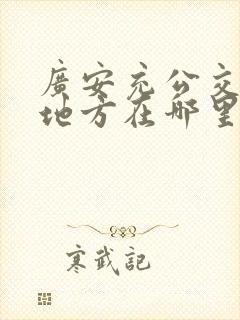 廣安充公交
地方在哪里
寒武記